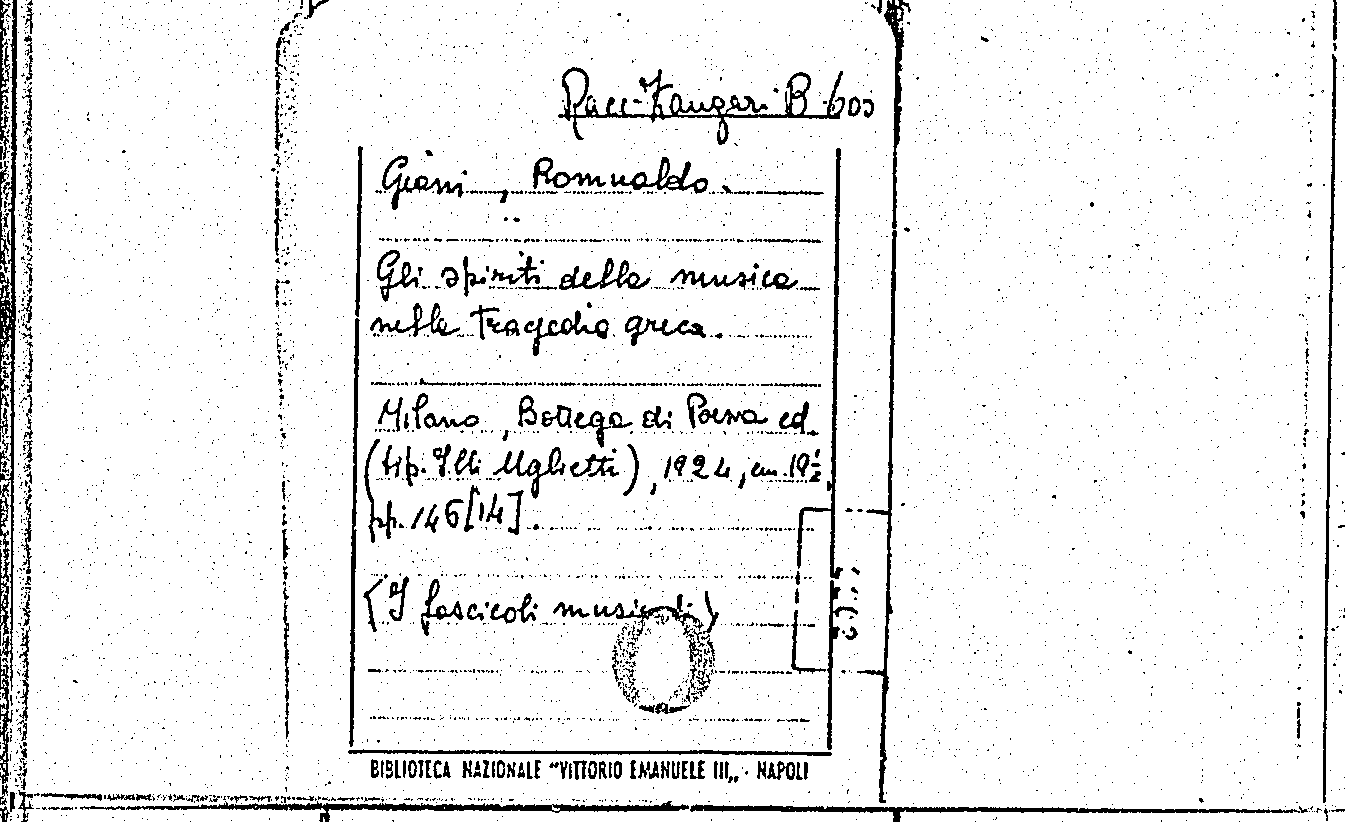 Racc. Zangari B 603
Giani, Romualdo.
Gli spiriti della musica
nella tragedia greca.
Milano, Bottega di Poesia ed.
(tip. F.lli Uglietti), 1924, cm. 19½
pp. 146 [14].
(I fascicoli musicali)
BIBLIOTECA NAZIONALE "VITTORIO EMANUELE III„ - NAPOLI